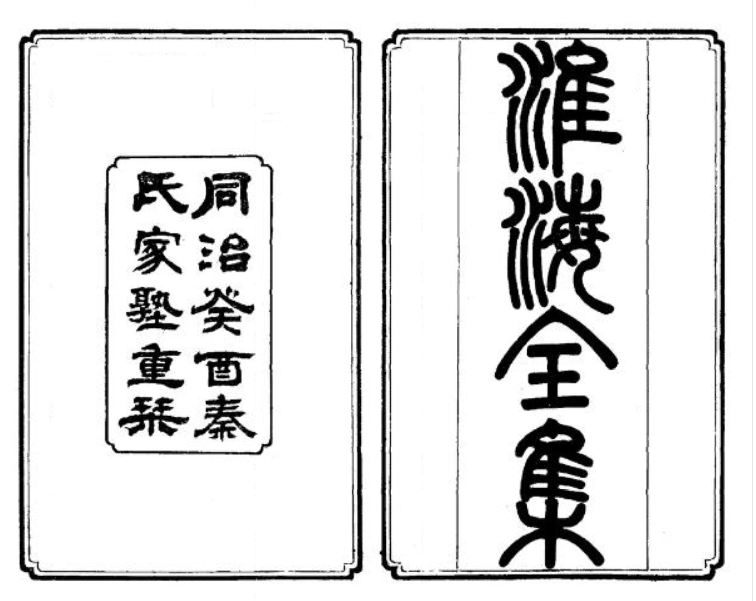 淮海全集
同治癸酉秦
氏家塾重栞